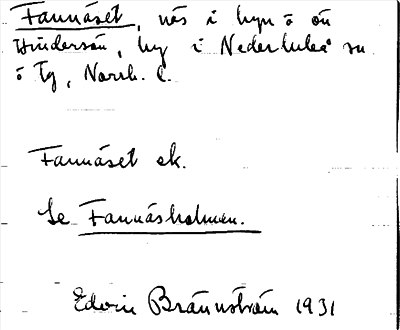 Fannäset, näs i hgn ö ön
Hindersön, hg i Nederluleå sn
o tg, Norrb. l.
Fannäset ek.
Se Fannäsholmen.
Edvin Brännström 1931